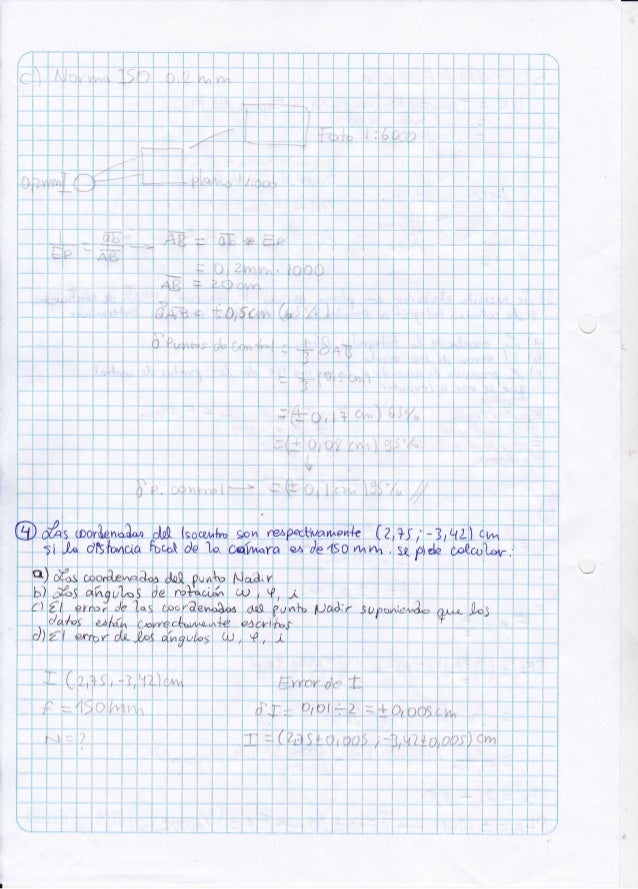 c) Norma ISO 0,2 mm
Foto 1:6000
0,2mm
plano 1/1000
1/EP = ab/AB → AB = ab * EP
= 0,2mm·1000
AB = 20cm
δAB = ±0,5cm (6 %
δ Puntos de control = 1/3 δAB
= 1/3 (0,5cm)
= (± 0,17 cm) 65%
= (± 0,08 cm) 95%
↓
δ p. control → = (± 0,1cm) 95% //
④ Las coordenadas del Isocentro son respectivamente (2,75 ; -3,42) cm
si la distancia Focal de la cámara es de 150 mm. se pide calcular:
a) Las coordenadas del punto Nadir
b) Los ángulos de rotación ω, φ, i
c) El error de las coordenadas del punto Nadir suponiendo que los
datos están correctamente escritos
d) El error de los ángulos ω, φ, i
I (2,75, -3,42) cm
Error de I
f = 150 mm
δI = 0,01÷2 = ±0,005 cm
N = ?
I = (2,75±0,005 ; -3,42±0,005) cm